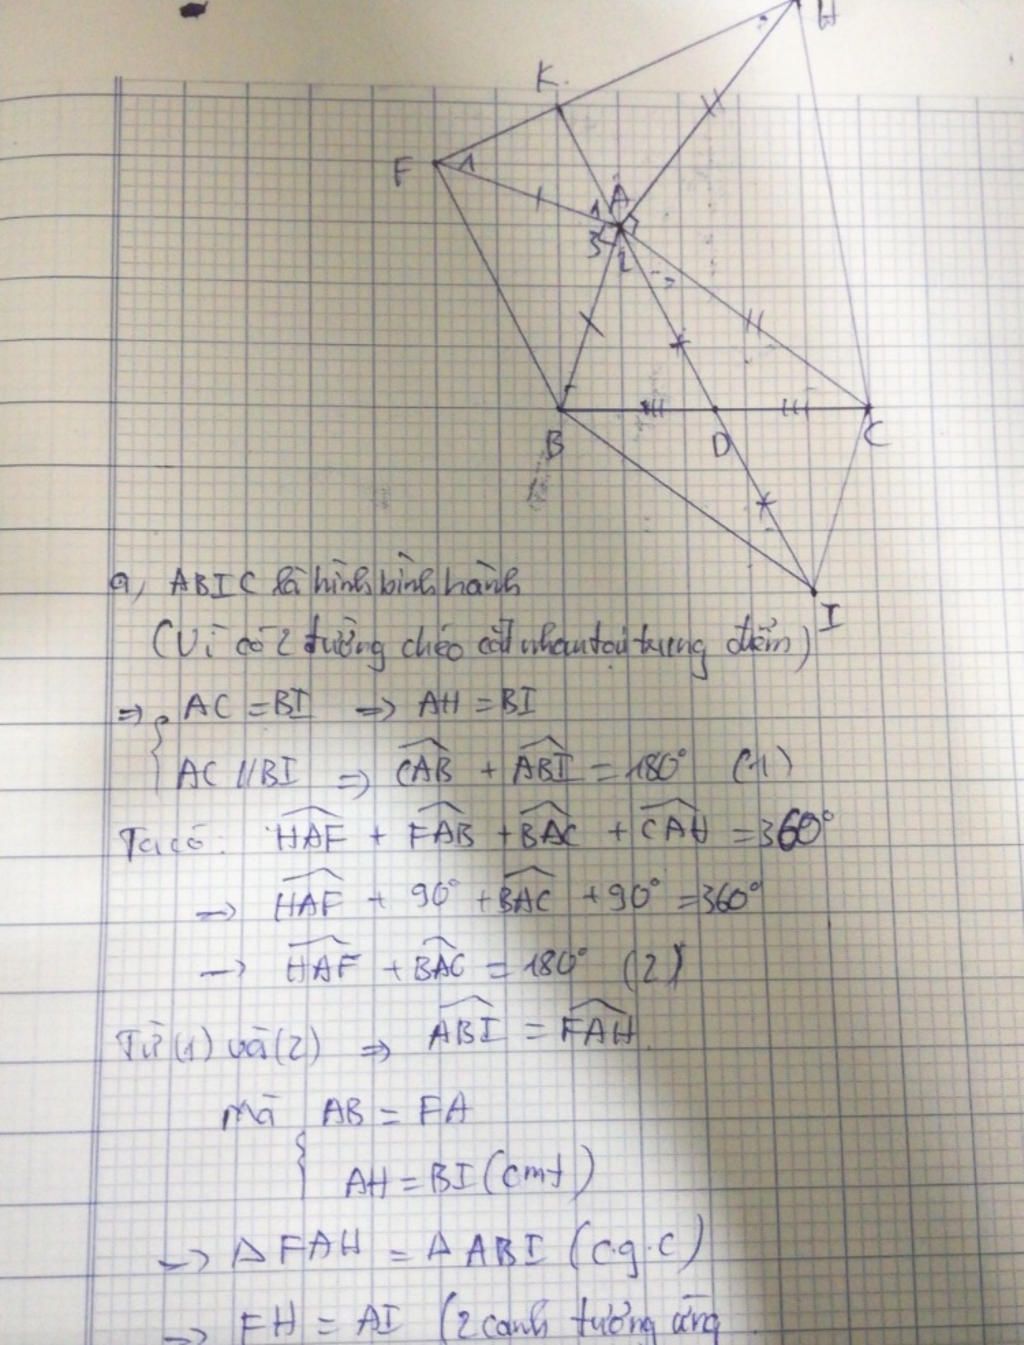 H
K
F
1
A
1
3
2
B
D
C
I
a, ABIC là hình bình hành
(Vì có 2 đường chéo cắt nhau tại trung điểm)
=> { AC = BI => AH = BI
AC // BI => CAB + ABI = 180° (1)
Ta có: HAF + FAB + BAC + CAH = 360°
-> HAF + 90° + BAC + 90° = 360°
-> HAF + BAC = 180° (2)
Từ (1) và (2) => ABI = FAH
Mà { AB = FA
AH = BI (cmt)
-> Δ FAH = Δ ABI (c.g.c)
=> FH = AI (2 cạnh tương ứng